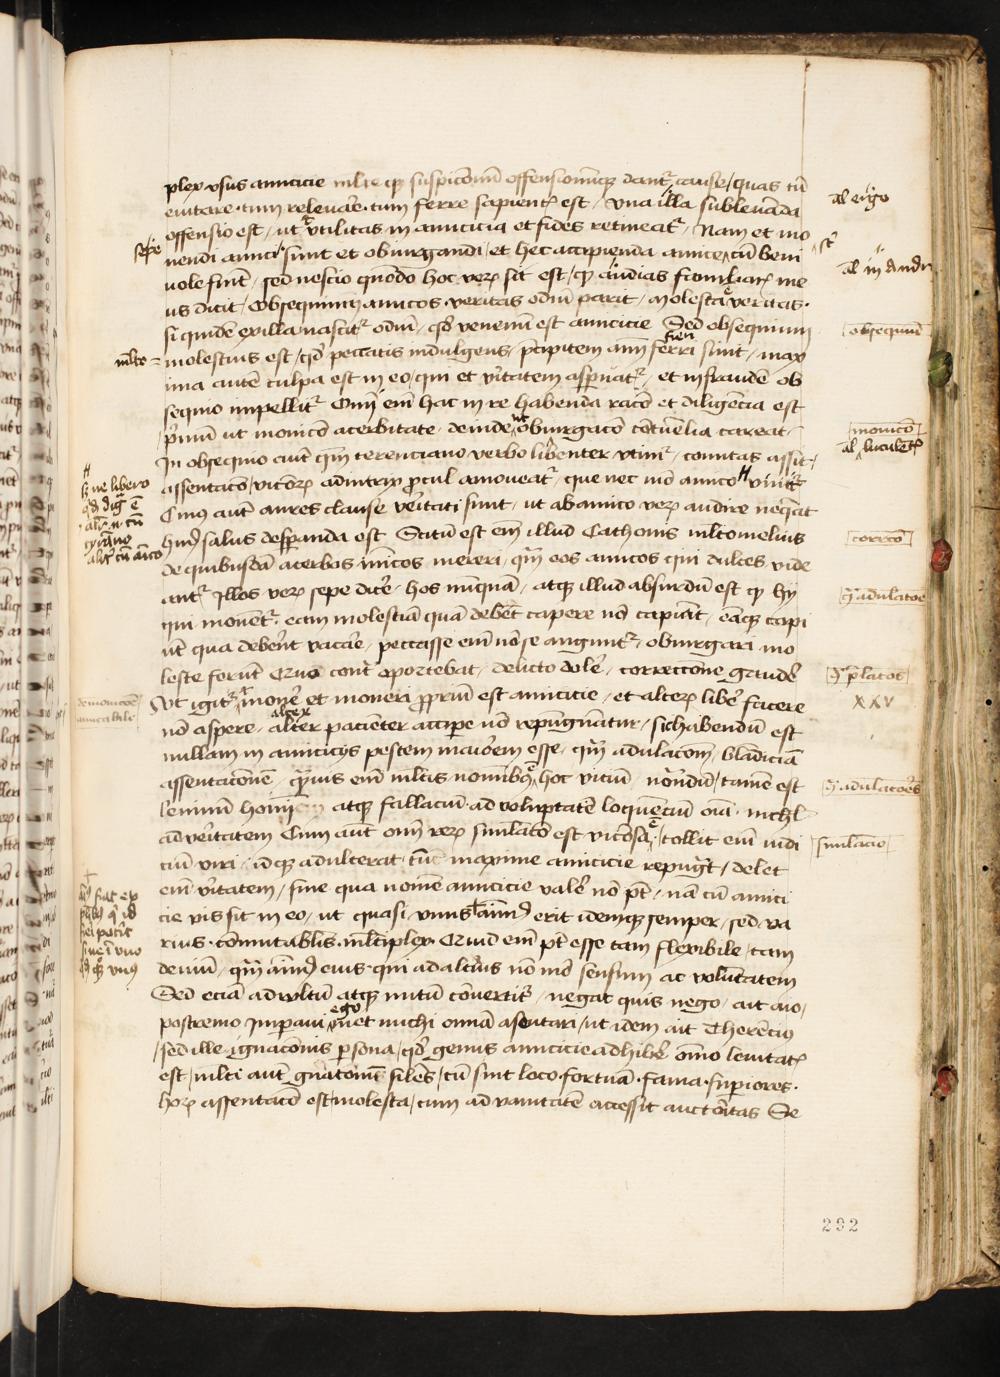 plex usus amicicie multe que suspicionum offensionumque dantur cause / quas tum
evitare · tum relevare · tum ferre sapientis est / Una illa sublevanda
offensio est / ut utilitas in amicicia et fides retineatur / Nam et mo
nendi amici sunt et obiurgandi / et hec accipienda amice cum beni
vole fiunt / sed nescio quomodo hoc verum sit est / quod in andrias familiaris me
us dicit / Obsequium amicos · veritas odium parit / Molesta veritas ·
siquidem ex illa nascitur odium / quod venenum est amicicie Sed obsequium
molestius est / quod peccatis indulgens / precipitem amicum ferri sinit / max
ima autem culpa est in eo / qui et veritatem aspernatur / et in fraudem ob
sequio impellitur Omni enim hac in re habenda racio et diligencia est
primum ut monicio acerbitate · deinde obiurgacio contumelia careat ·
In obsequio autem quoniam terenciano verbo libenter utimur / comitas assit /
assentacio / viciorum adiutrix procul amoveatur / que nec modo amico
Cuius autem aures clause veritati sunt / ut ab amico verum audire nequeat
huius salus desperanda est Scitum est enim illud Cathonis multo melius
de quibusdam acerbos inimicos mereri / quam eos amicos qui dulces vide
antur Illos verum sepe dicere / hos nunquam / atque illud absurdum est quod hy
qui monentur · eam molestiam quam debent capere non capiunt / eamque capi
unt qua debent vacare / peccasse enim non se angunt / obiurgari mo
leste ferunt Quod contra oportebat / delicto dolere / correctione gaudere
Ut igitur monere et moneri proprium est amicicie / et alterum libere facere
non aspere / alter pacienter accipere non repugnantur / sic habendum est
nullam in amiciciis pestem maiorem esse / quam adulacionem / blandiciam
assentacionem / quamvis enim multis nominibus hoc vicium / notandum tamen est
levium hominum atque fallacium ad voluptatem loquencium omnia · nichil
ad veritatem Cum autem omnium rerum simulacio est viciosa / tollit enim iudi
cium veri / idque adulterat · tum maxime amicicie repugnat / delet
enim veritatem / sine qua nomen amicicie valere non potest / nam cum amici
cie vis sit in eo / ut quasi unus animus erit idemque semper / sed va
rius · commutabilis · multiplex Quid enim potest esse tam flexibile / tam
devium / quam animus eius qui ad alterius non modo sensum ac voluntatem
Sed eciam ad vultum atque nutum convertitur / negat quis nego / ait aio /
postremo Imperavi egomet michi omnia asentari / ut idem ait Therencius
/ sed ille ignaconis persona / quod genus amicicie adhibere omnino levitatis
est / multi autem gnatonum similes / cum sint loco · fortuna · fama · superiores ·
horum assentacio est molesta / cum ad vanitatem accessit auctoritas Se
al ergo
sepe
al in andri
obsequium
multo
monicio
al luculenter
correctio
contra adulatores
contra prelatos
XXV
de monicione
amicabili
contra adulatores
simulacio
292